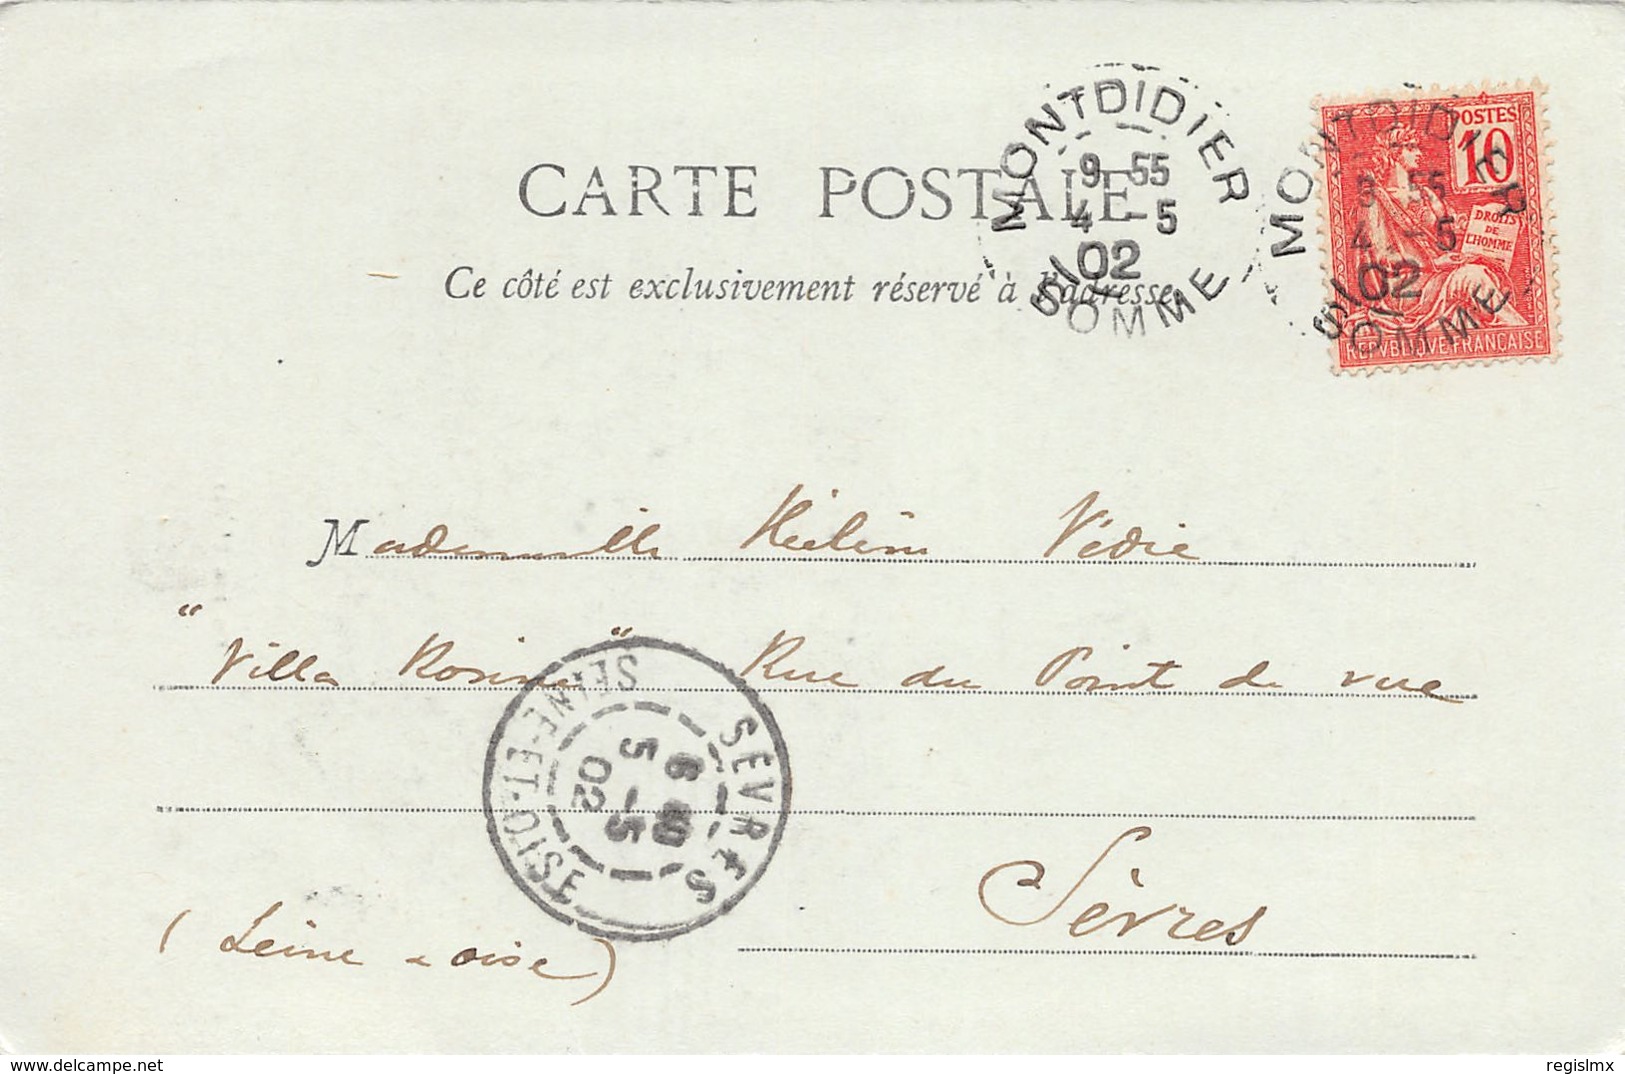 MONTDIDIER
9 55
4 -5
02
SOMME
MONTDIDIER
9 55
4 -5
02
SOMME
POSTES
10
DROITS
DE
L'HOMME
REPVBLIQVE FRANÇAISE
CARTE POSTALE
Ce côté est exclusivement réservé à l'adresse
Mademoiselle Hélène Védie
"Villa Rosine" Rue du Point de vue
Sèvres
(Seine & oise)
SÈVRES
6 10
5 -5
02
SEINE-ET-OISE
www.delcampe.net
regislmx